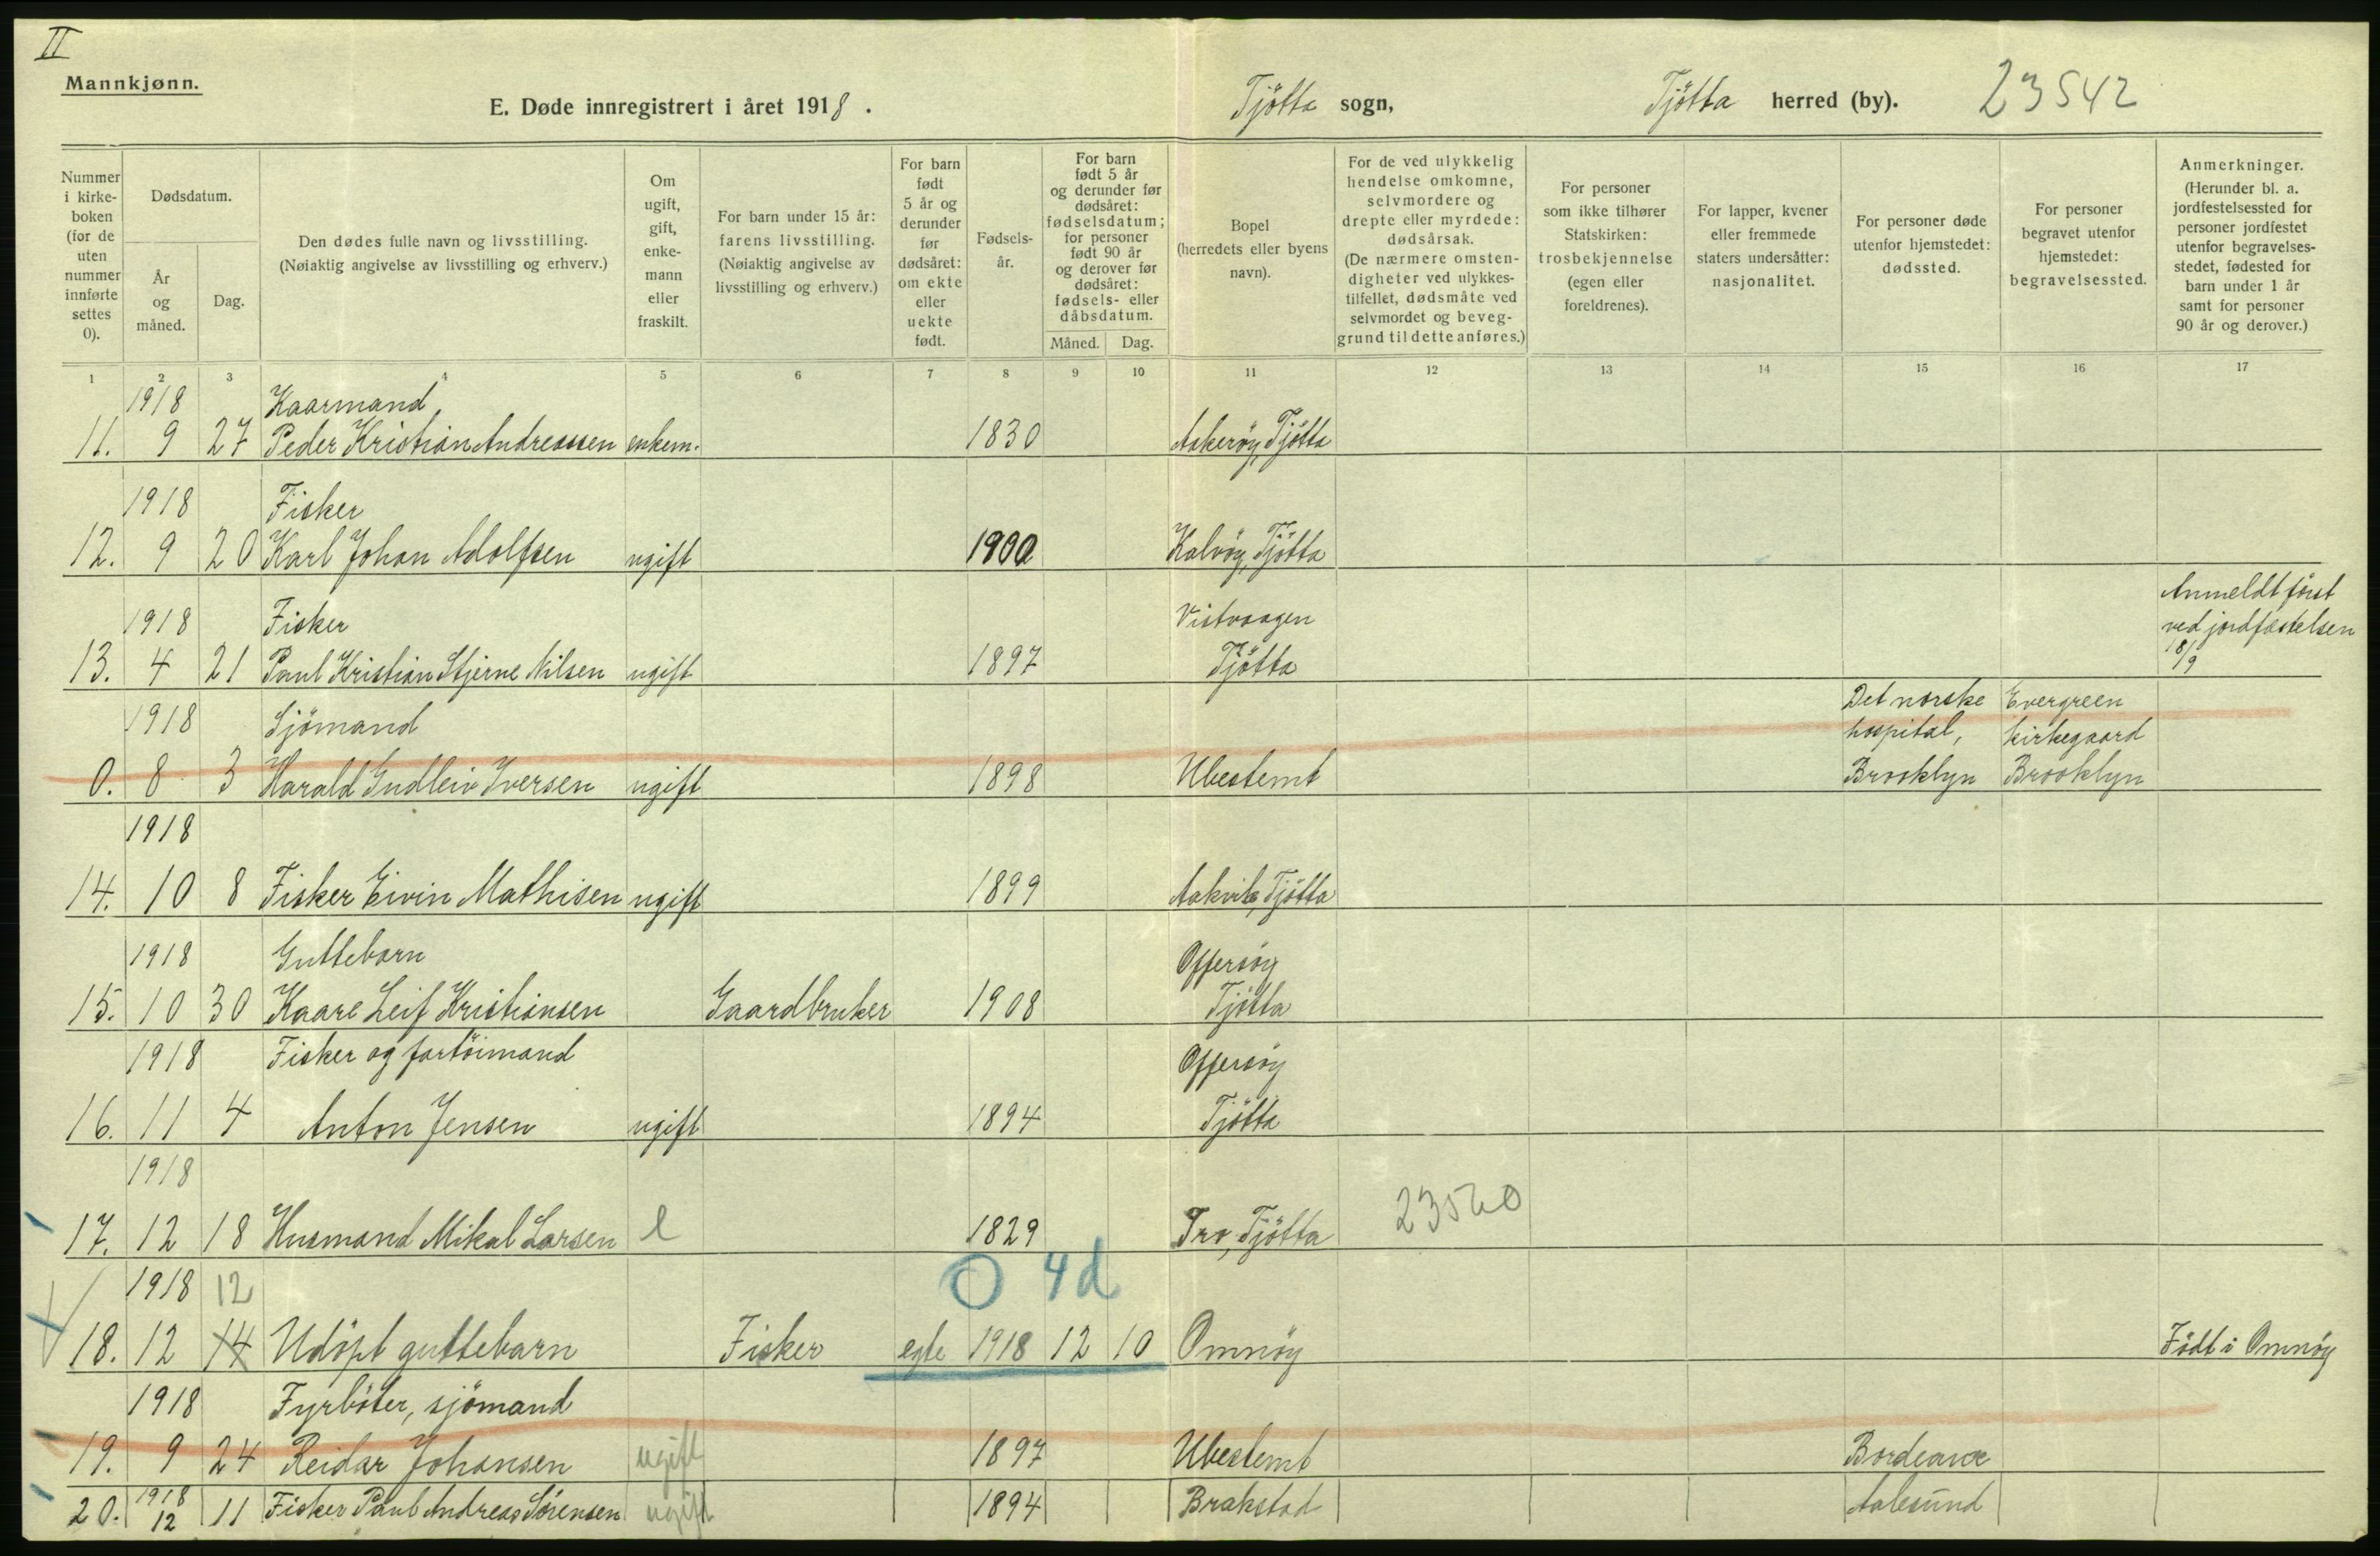 II
Mannkjønn.
E. Døde innregistrert i året 1918.
Tjötta sogn,
Tjötta herred (by).
23542
Nummer i kirke-boken (for de uten nummer innførte settes 0).
Dødsdatum.
År og måned.
Dag.
Den dødes fulle navn og livsstilling.
(Nøiaktig angivelse av livsstilling og erhverv.)
Om ugift, gift, enke-mann eller fraskilt.
For barn under 15 år: farens livsstilling.
(Nøiaktig angivelse av livsstilling og erhverv.)
For barn født 5 år og derunder før dødsåret: om ekte eller uekte født.
Fødsels-år.
For barn født 5 år og derunder før dødsåret: fødselsdatum; for personer født 90 år og derover før dødsåret: fødsels- eller dåbsdatum.
Måned. Dag.
Bopel (herredets eller byens navn).
For de ved ulykkelig hendelse omkomne, selvmordere og drepte eller myrdede: dødsårsak.
(De nærmere omsten-digheter ved ulykkes-tilfellet, dødsmåte ved selvmordet og beveg-grund til dette anføres.)
For personer som ikke tilhører Statskirken: trosbekjennelse (egen eller foreldrenes).
For lapper, kvener eller fremmede staters undersåtter: nasjonalitet.
For personer døde utenfor hjemstedet: dødssted.
For personer begravet utenfor hjemstedet: begravelsessted.
Anmerkninger.
(Herunder bl. a. jordfestelsessted for personer jordfestet utenfor begravelses-stedet, fødested for barn under 1 år samt for personer 90 år og derover.)
1 2 3 4 5 6 7 8 9 10 11 12 13 14 15 16 17
1918 Kaarmand
11. 9 27 Peder Kristian Andreassen enkem. 1830 Aakeröy, Tjötta
1918 Fisker
12. 9 20 Karl Johan Adolfsen ugift 1900 Kalvöy, Tjötta
1918 Fisker Vistvaagen Anmeldt först ved jordfæstelsen
13. 4 21 Paul Kristian Stjerne Nilsen ugift 1897 Tjötta 18/9
1918 Sjömand Det norske hospital, Evergreen kirkegaard
0. 8 3 Harald Gudleiv Iversen ugift 1898 Ubestemt Brooklyn Brooklyn
1918
14. 10 8 Fisker Eivin Mathisen ugift 1899 Aakvik, Tjötta
1918 Guttebarn Offersöy
15. 10 30 Kaare Leif Kristiansen Gaardbruker 1908 Tjötta
1918 Fisker og fartöimand Offersöy
16. 11 4 Anton Jensen ugift 1894 Tjötta
1918
17. 12 18 Husmand Mikal Larsen e 1829 Tro, Tjötta 23520
1918 12 0 4d
18. 12 14 Udöpt guttebarn Fisker egte 1918 12 10 Omnöy Födt i Omnöy
1918 Fyrböter, sjömand
19. 9 24 Reidar Johansen ugift 1897 Ubestemt Bordeaux
20. 1918 12 11 Fisker Paul Andreas Sörensen ugift 1894 Brakstad Aalesund